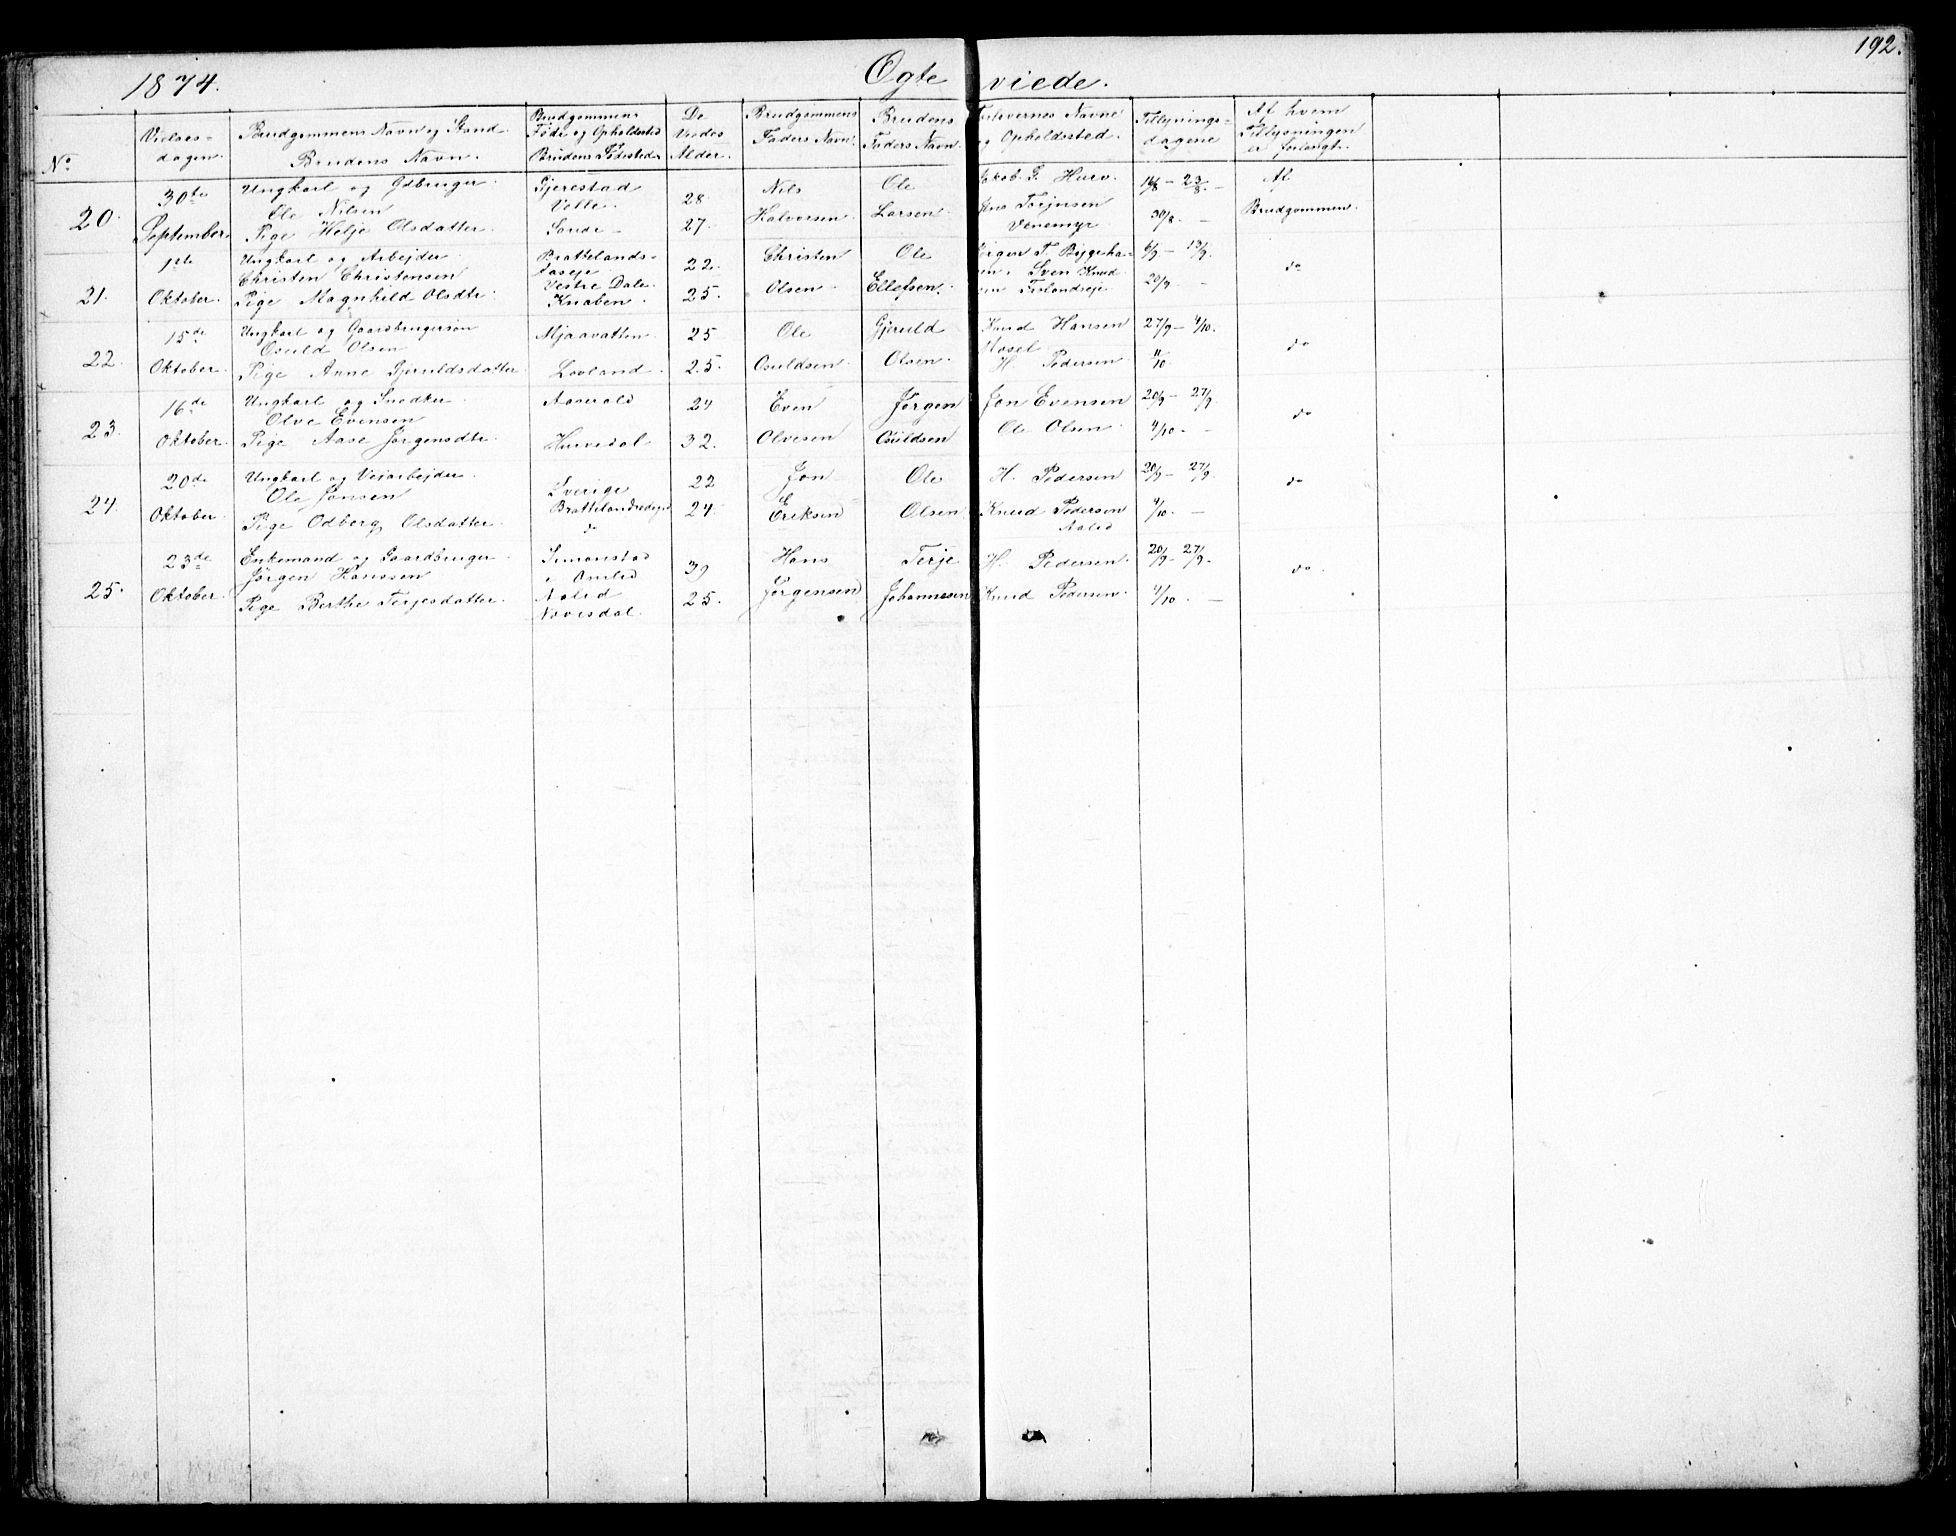 192.
1874. Ægteviede.
No
Vielses-
dagen.
Brudgommens Navn og Stand.
Brudens Navn.
Brudgommens
Føde og Opholdssted
Brudens Fødested
De
Viedes
Alder.
Brudgommens
Faders Navn.
Brudens
Faders Navn.
Forlovernes Navne
og Opholdssted.
Tillysnings-
dagene
Af hvem
Tillysningen
er forlangt.
20.
30te
September.
Ungkarl og Gdbruger
Ole Nilsen
Pige Helje Olsdatter
Gjerestad
Volle
Sande
28
27.
Nils
Halvorsen
Ole
Larsen
Jakob G. Hurv.
Jens Torjusen
Venemyr
16/8 - 23/8
30/8 -
Af
Brudgommen.
21.
1ste
Oktober.
Ungkarl og Arbejder
Christen Christensen
Pige Magnhild Olsdtr.
Brattelands-
aaseje
Vestre Dale
Knaben
22.
25.
Christen
Olsen
Ole
Ellefsen.
T. Byggeha-
Sven Knud-
sen
6/9 - 13/9
20/9 -
do
22.
15de
Oktober.
Ungkarl og Gaardbrugersøn
Osuld Olsen
Pige Anne Gjeruldsdatter
Mjaavatten
Lovland
25
25.
Ole
Osuldsen
Gjeruld
Olsen
Knud Hansen
Mosel
H. Pedersen
27/9 - 4/10.
11/10
do
23.
16de
Oktober.
Ungkarl og Snedker
Olve Evensen
Pige Aase Jørgensdtr.
Aaserald
Hurvedal
24
32.
Even
Olvesen
Jørgen
Osuldsen
Jon Evensen
Ole Olsen
20/9 - 27/9
4/10 -
do
24.
20de
Oktober.
Ungkarl og Vejarbejder
Ole Jonsen
Pige Odberg Olsdatter
Sverige
do
22
24.
Jon
Eriksen
Ole
Olsen
H. Pedersen
Knud Pedersen
Aalid
20/9 - 27/9
4/10 -
do
25.
23de
Oktober.
Enkemand og Gaardbruger
Jørgen Hanssen
Pige Berthe Terjesdatter
Simonstad
i Omlid
Aalid
Nævesdal.
39
25.
Hans
Jørgensen
Terje
Johannesen
H. Pedersen
Knud Pedersen
20/9 - 27/9
4/10 -
do